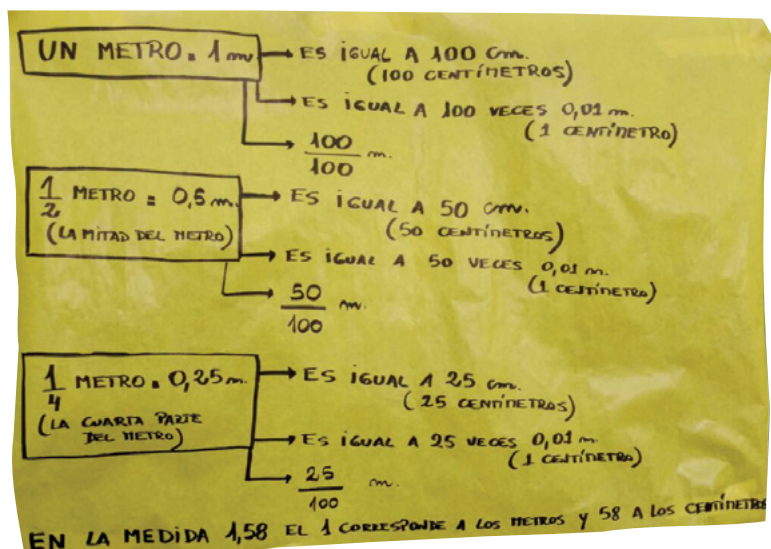 UN METRO = 1 m → ES IGUAL A 100 cm.
(100 CENTÍMETROS)
→ ES IGUAL A 100 VECES 0,01 m.
(1 CENTÍMETRO)
→ 100/100 m.
1/2 METRO = 0,5 m. → ES IGUAL A 50 cm.
(LA MITAD DEL METRO)
(50 CENTÍMETROS)
→ ES IGUAL A 50 VECES 0,01 m.
(1 CENTÍMETRO)
→ 50/100 m.
1/4 METRO = 0,25 m. → ES IGUAL A 25 cm.
(LA CUARTA PARTE
DEL METRO)
(25 CENTÍMETROS)
→ ES IGUAL A 25 VECES 0,01 m.
(1 CENTÍMETRO)
→ 25/100 m.
EN LA MEDIDA 1,58 EL 1 CORRESPONDE A LOS METROS Y 58 A LOS CENTÍMETROS